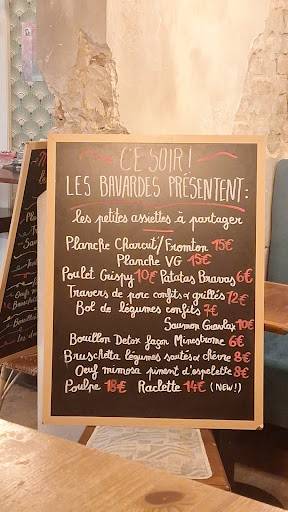 ~ C'E SOIR! ~
LES BAVARDES PRÉSENTENT:
les petites assiettes à partager
Planche Charcut/Fromton 15€
Planche VG 15€
Poulet Crispy 10€ Patatas Bravas 6€
Travers de porc confits & grillés 12€
Bol de légumes confits 7€
Saumon Gravlax 10€
Bouillon Detox façon Minestrone 6€
Bruschetta légumes sautés & chèvre 8€
Oeuf mimosa piment d'espelette 8€
Poulpe 18€ Raclette 14€ (NEW!)